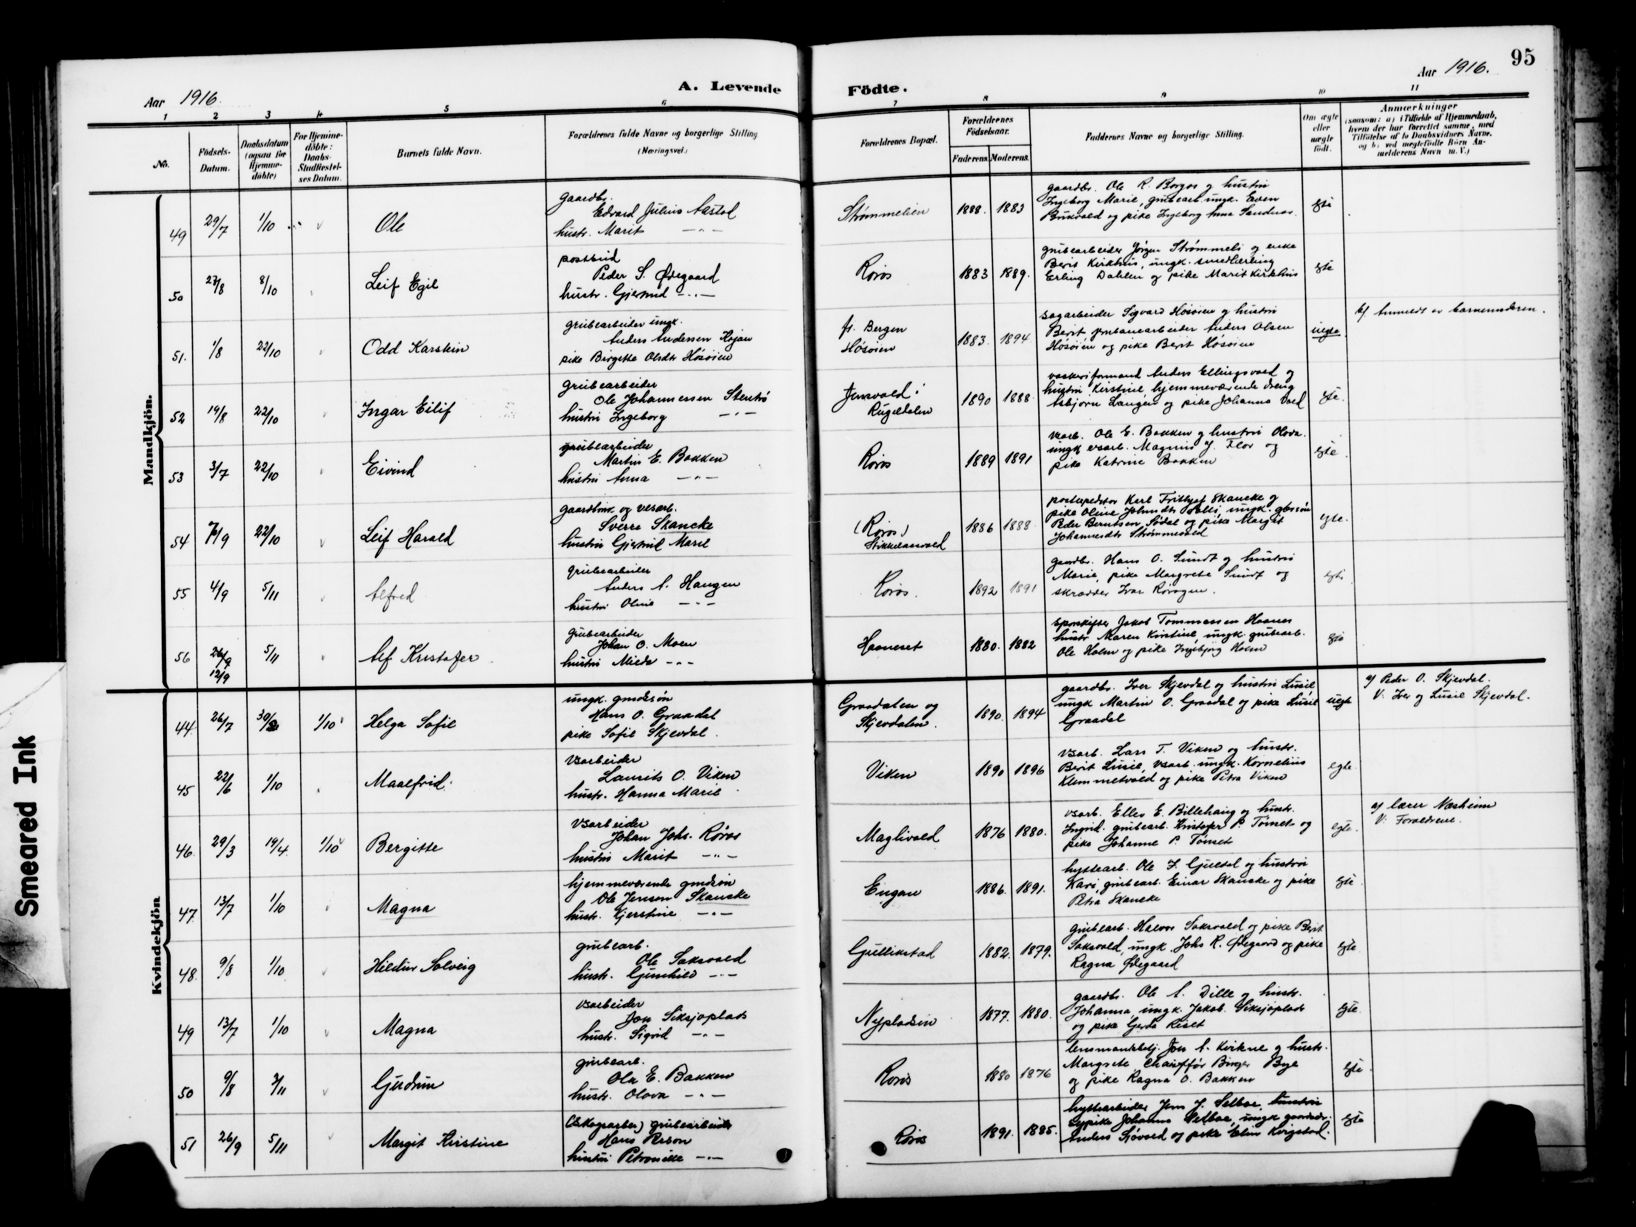 95
Aar 1916.
A. Levende Födte.
Aar 1916.
1 2 3 4 5 6 7 8 9 10 11
No. Födsels-Datum. Daabsdatum (ogsaa for Hjemmedöbte) For Hjemmedöbte: Daabs-Stadfæstelses Datum. Barnets fulde Navn. Forældrenes fulde Navne og borgerlige Stilling (Næringsvei.) Forældrenes Bopæl. Forældrenes Födselsaar. Faderens Moderens. Faddernes Navne og borgerlige Stilling. Om ægte eller uægte födt. Anmærkninger
Mandkjön.
49 29/7 1/10 Ole
gaardbr.
Edvard Julius Aastad
hustr. Marit —"—
Strømmelien 1888. 1883
gaardbr. Ole R. Borgos og hustru
Ingeborg Marie, grubearb. ungk. Even
Bukvold og pike Ingeborg Anna Sandnes
egte
50 27/8 8/10 Leif Egil
postbud
Peder S. Ødegaard
hustr. Gjertrud —"—
Røros 1883 1889.
grubearbeider Jørgen Strømmeli og enke
Berit Kirkhus, ungk. smedlærling
Erling Dahlen og pike Marit Kirkhus
egte
51. 1/8 22/10 Odd Karstein
grubearbeider ungk.
Anders Andersen
pike Birgitte Olsdtr Hösöien
fr. Bergen
Hösöien 1883. 1894
sagarbeider Sigvard Hösöien og hustru
Berit Anders Olsen
Hösöien og pike Berit Hosøien
uegte
b/ Anmeldt av barnemoderen.
52 19/8 22/10 Ingar Eilif
Grubearbeider
Ole Johannessen
hustru Ingeborg —"—
Jensvold i
Rugeldalen 1890 1888
Anders Ellingsvold og
hustru Kirstine, hjemmeværende dreng
Asbjørn Langen og pike Johanna
egte.
53 3/7 22/10 Eivind
grubearbeider
Martin E. Bakken
hustru Anna —"—
Røros 1889 1891
vsarb. Ole E. Bakken og hustru Olova.
ungk vsarb. Magnus J. Flor og
pike Katrine Bakken
egte
54 7/9 22/10 Leif Harald
gaardbruk. og vsarb.
Sverre Skancke
hustru Gjertrud Marie
(Røros)
Stikkelaasvold 1886 1888
postexpeditør Karl Fritjof Skancke og
pike Oline Johnsdtr Solli, ungk. gbrsøn
Peder Berntsen Sødal og pike Margit
Johannesdtr Strømmevold
egte.
55 4/9 5/11 Alfred
grubearbeider
Anders A. Haugen
hustru Oline —"—
Røros. 1892 1891
gaardbr. Hans O. Sundt og hustru
Marie, pike Margrete Sundt og
skrædder Ivar Rørogen.
egte
56 12/9 5/11 Alf Kristofer
Grubearbeider
Johan O. Moen
hustru Alida —"—
Haaneset 1880. 1882
sporskifter Jakob Tommassen Haanes
hustr Maren Kirstine, ungk. grubearb.
Ole Holm og pike Ingebjørg Holm
egte
Kvindekjön
44 26/7 30/8 1/10 Helga Sofie
ungk. gmdssön
Hans O. Graadal
pike Sofie Skjevdal.
Graadalen og
Skjevdalen. 1890. 1894
gaardbr. Iver Skjevdal og hustru Lusie
ungk Martin O. Graadal og pike Lusie
Graadal
uegte
a/ Peder O. Skjevdal.
V. Iver og Lusie Skjevdal.
45 22/6 1/10 Maalfrid.
Vsarbeider
Laurits O. Viken
hustr. Hanna Marie
Viken 1890 1896
Vsarb. Lars T. Viken og hustr.
Berit Lusie, vsarb. ungk. Kornelius
Klemmetvold og pike Petra Viken
egte
46. 29/3 19/4. 1/10 Bergitte
Vsarbeider
Johan Johs. Røros
hustru Marit —"—
Maglivold 1876 1880.
vsarb. Elles E. Billehaug og hustr.
Ingrid. grubearb. Kristofer P. Tömset og
pike Johanne P. Tömset
egte.
a/ lærer Næsheim
V. Forældrene.
47 13/7 1/10 Magna
hjemmeværende gmdssøn
Ole Jensen Skancke
hustr. Kjerstine —"—
Engan 1886. 1891.
hyttearb. Ole J. Gjeldal og hustru
Kari, grubearb. Einar Skancke og pike
Petra Skancke
egte
48. 9/8 1/10 Hildur Solveig
grubearb.
Ole Saksvold
hustr. Gunhild —"—
Gullikstad 1882. 1879.
grubearb. Halvor Saksvold og pike Berit
Saksvold, ungk. Johs R. Ødegaard og pike
Ragna Ødegaard
egte
49 13/7 1/10 Magna
Vsarbeider
Jon Siksjøplads
hustr. Sigrid —"—
Nyplodsen 1877. 1880.
gaardbr. Ole A. Dille og hustr.
Johanna, ungk. Jakob Siksjøplads
og pike Gerda Riset
egte
50 9/8 3/11 Gudrun
grubearb.
Ole E. Bakken
hustr. Olova —"—
Røros 1880 1876
lensmandsbetj. Jon A. Kirkne og hustr.
Margrete Chauffør Birger Bye
og pike Ragna O. Bakken
egte
51 26/9 5/11 Margit Kristine
grubearbeider
Hans Person
hustru Petronille —"—
Røros 1891. 1885.
hyttearbeider Jon J. Selboe, hustru
pike Johanna Selboe, ungk gaardbr.
Anders Sjövold og pike Elin
egte
Smeared Ink